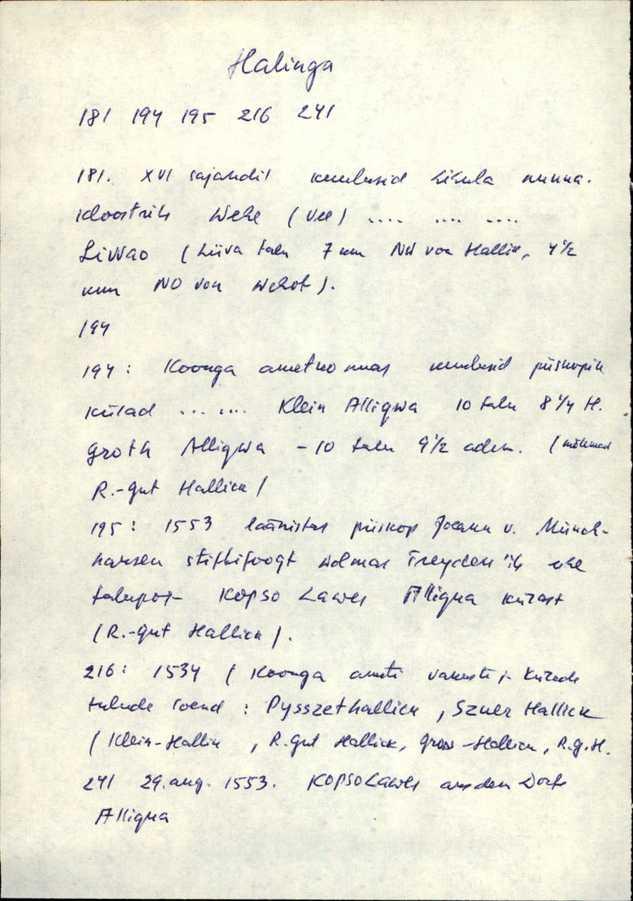 Halinga
181 194 195 216 241
181. XVI sajandil kuulusid Lihula nunna-
kloostrile Wehe (Vee) .... .... ....
Liwao (Liiva talu 7 km NW von Hallik, 4 1/2
km NO von Wehof).
194
194: Koonga ametkonnas kuulusid piiskopile
külad ... ... Klein Alliqwa 10 talu 8 1/4 H.
groth Alliqwa - 10 talu 9 1/2 adem. (mõlemad
R.-gut Hallick)
195: 1553 läänistas piiskop Joann v. Münch-
hausen stiftifoogt Wolmar Treyden'ile ühe
talupoja Kopso Lawes Alliqua külast
(R.-gut Hallick).
216: 1534 (Koonga ameti vakuste ja külade
talude loend: Pysszethallick, Szuer Hallick
(Klein-Hallick, R.gut Hallick, Gross-Hallick, R.g.H.
241 29.aug. 1553. Kopso Lawes aus dem Dorfe
Alliqua